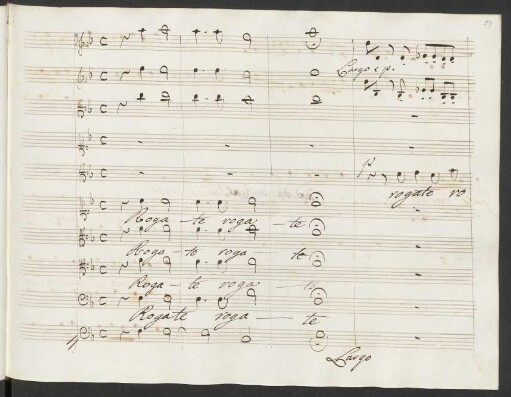 Largo e p.
rogate ro
Roga - te roga - te
Roga - te roga te
Roga - te roga - te
Rogate roga - te
Largo